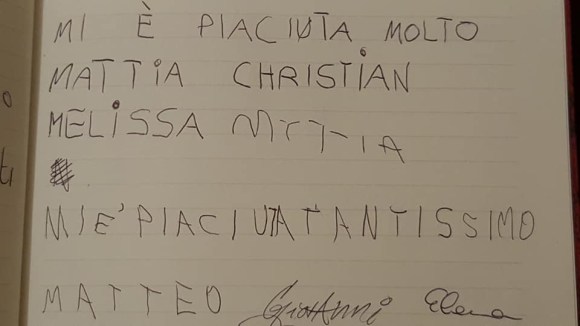 MI È PIACIUTA MOLTO
MATTiA CHRISTIAN
MELISSA MATTIA
MI E' PIACIUTA TANTISSIMO
MATTEO Giovanni Elena